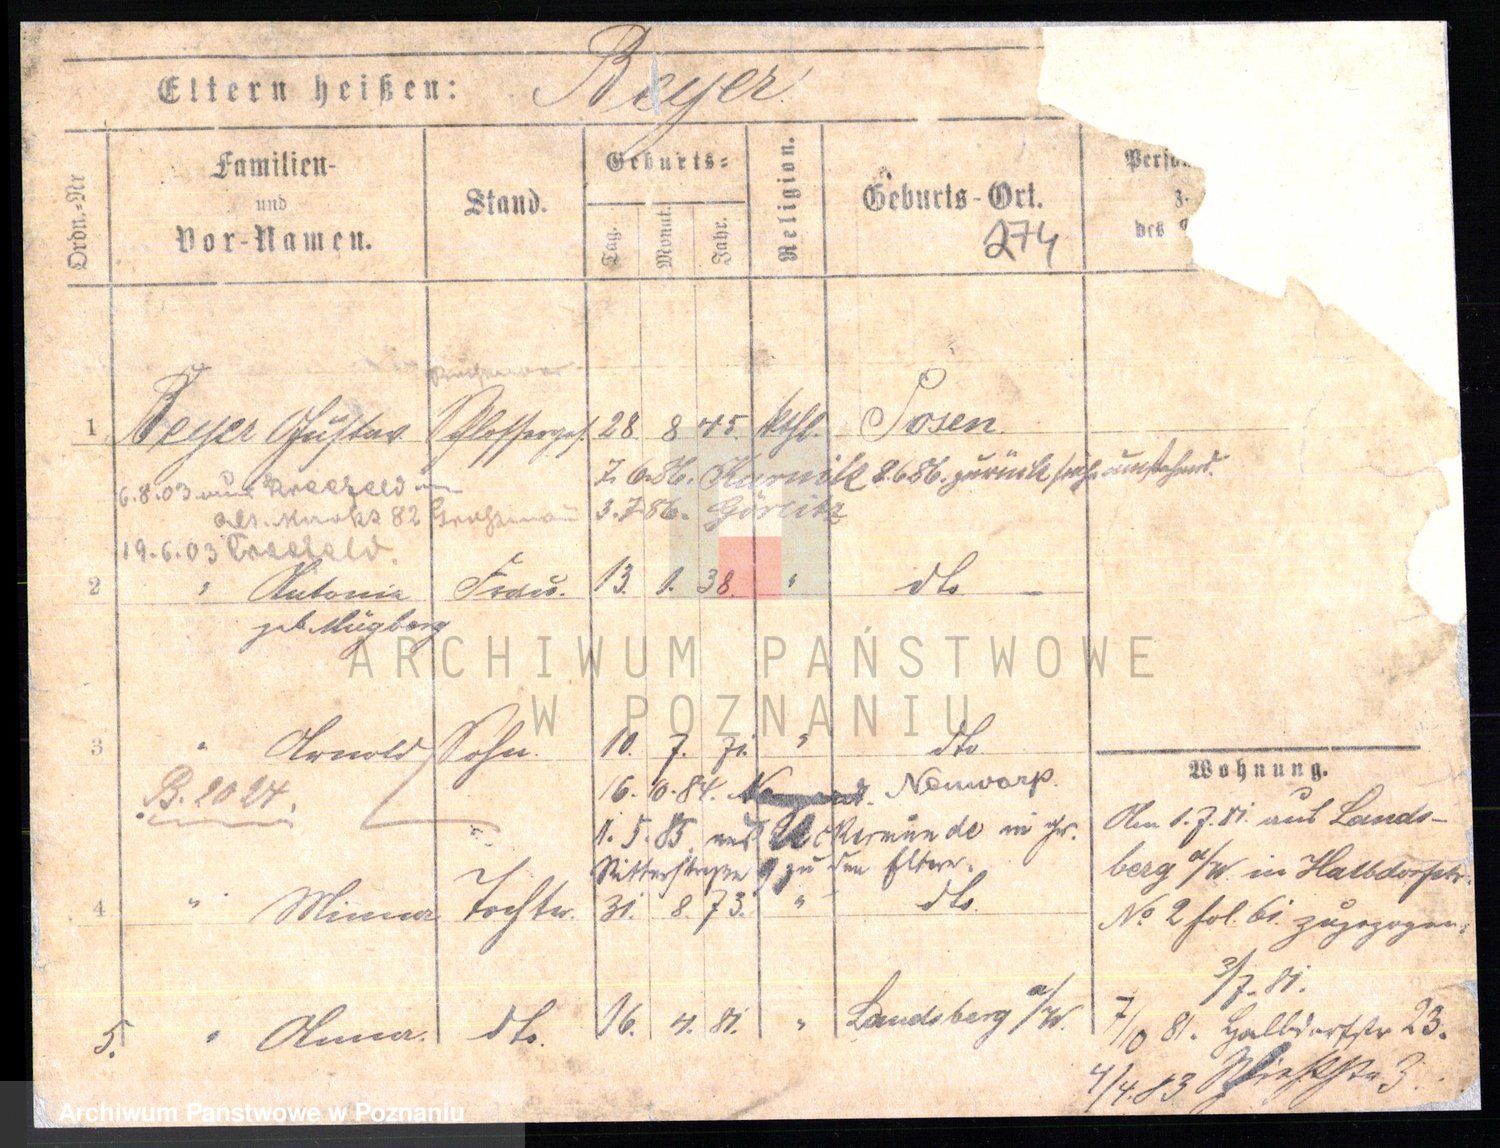 Eltern heißen: Beyer
Ordn.-Nr
Familien-
und
Vor-Namen.
Stand.
Geburts-
Tag.
Monat.
Jahr.
Religion.
Geburts-Ort.
274
des
1 Beyer Gustav Schlosserges. 28 8 45. kthl. Posen
7. 6. 86. Kurnik 8.6.86. zurück umstehend.
6.8.03 aus Krefeld
82
3. 7. 86. Görlitz
19.6.03 Krefeld.
2 " Antonie Frau. 13. 1. 38. " dto
geb. Mügberg
3 " Arnold Sohn. 10. 7. 71. " dto
B. 2024.
16. 10. 84. Neuwarp.
1. 5. 85. aus Uckermünde in gr.
Ritterstraße 9 zu den Eltern.
4 " Minna Tochter. 31. 8. 73. " dto.
5. " Anna. dto. 16. 4. 81. " Landsberg a/W.
Wohnung.
Am 1.7.81. aus Lands-
berg a/W in Halbdorfstr.
No 2 fol. 61. zugezogen.
3/7. 81.
7/10 81. Halbdorfstr 23.
4/4. 83 3.
ARCHIWUM PAŃSTWOWE
W POZNANIU
Archiwum Państwowe w Poznaniu